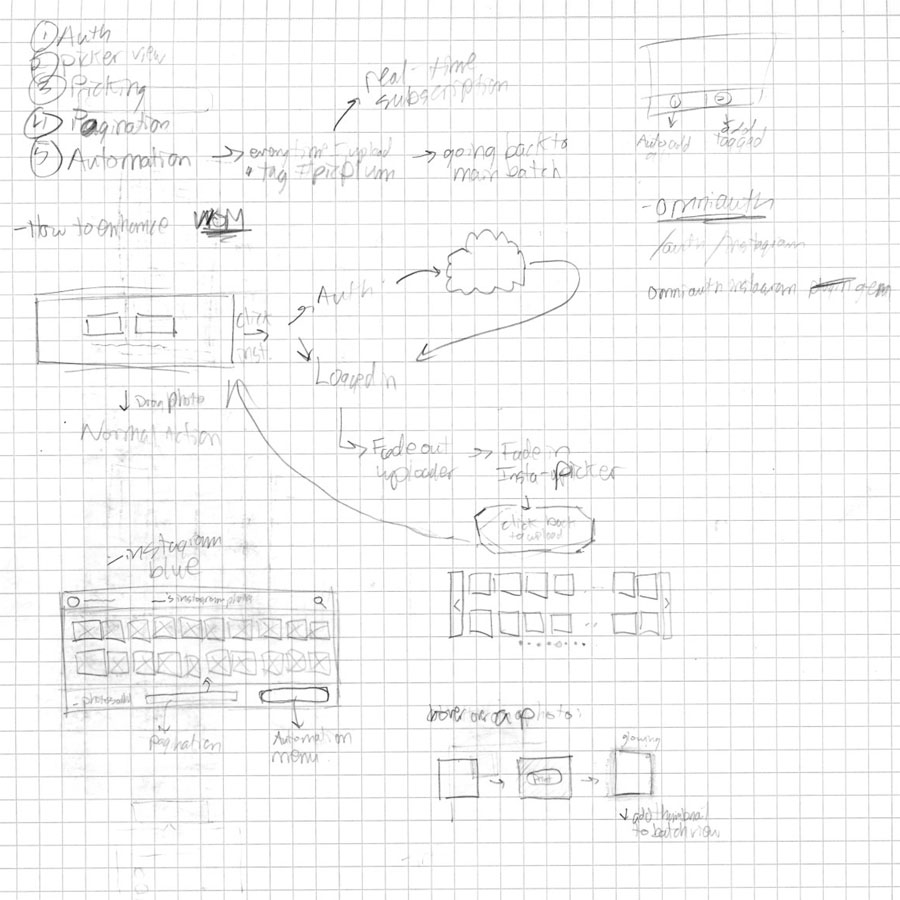 ① Auth
② picker view
③ Picking
④ Pagination
⑤ Automation
→ everytime I upload
a tag #picplum
real-time
subscription
→ going back to
main batch
① ②
Auto add
add
tagged
- How to enhance
- omniauth
/auth/instagram
omniauth instagram gem
click
inst.
Auth
Logged in
↓ Drop photo
Normal Action
Fade out
uploader
→ Fade in
Insta-picker
click back
to upload
- instagram
blue
's instagram photos
pagination
Automation
menu
hover on a photo:
glowing
add thumbnail
to batch view